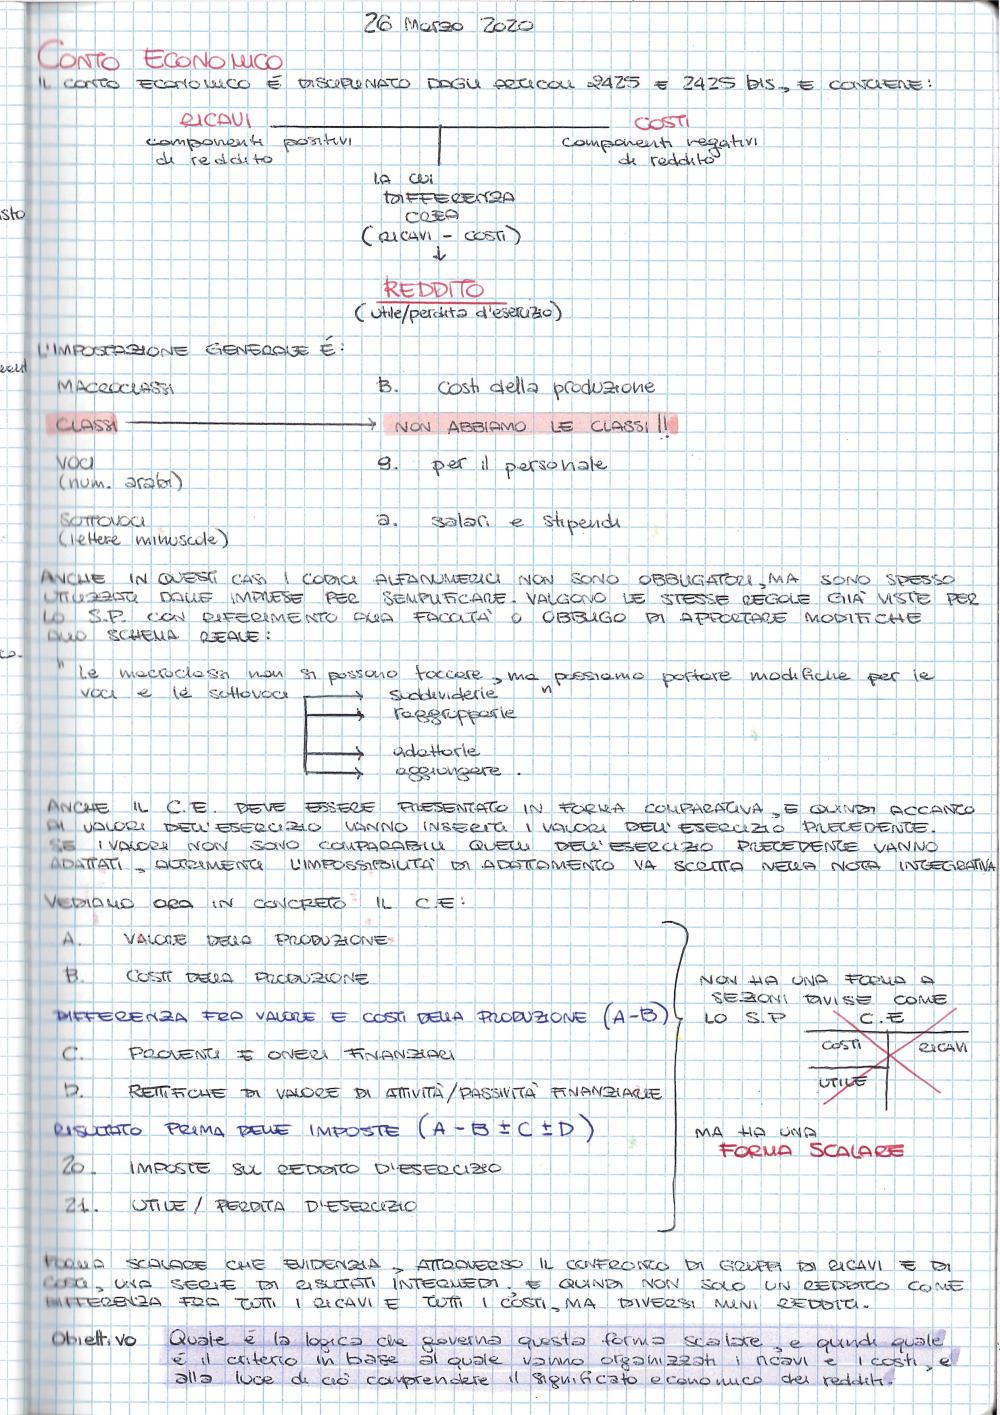 26 Marzo 2020
CONTO ECONOMICO
IL CONTO ECONOMICO É DISCIPLINATO DAGLI ARTICOLI 2425 E 2425 bis, E CONTIENE:
RICAVI COSTI
componenti positivi componenti negativi
di reddito di reddito
LA CUI
DIFFERENZA
sto
CREA
(RICAVI - COSTI)
↓
REDDITO
(utile/perdita d'esercizio)
L'IMPOSTAZIONE GENERALE É:
MACROCLASSI B. costi della produzione
CLASSI → NON ABBIAMO LE CLASSI!!
VOCI 9. per il personale
(num. arabi)
SOTTOVOCI a. salari e stipendi
(lettere minuscole)
ANCHE IN QUESTI CASI I CODICI ALFANUMERICI NON SONO OBBLIGATORI, MA SONO SPESSO
UTILIZZATI DALLE IMPRESE PER SEMPLIFICARE. VALGONO LE STESSE REGOLE GIÀ VISTE PER
LO S.P. CON RIFERIMENTO ALLA FACOLTÀ O OBBLIGO DI APPORTARE MODIFICHE
ALLO SCHEMA REALE:
" Le macroclassi non si possono toccare, ma possiamo portare modifiche per le
voci e le sottovoci → suddividerle "
→ raggrupparle
→ adattarle
→ aggiungere.
ANCHE IL C.E. DEVE ESSERE PRESENTATO IN FORMA COMPARATIVA, E QUINDI ACCANTO
AI VALORI DELL'ESERCIZIO VANNO INSERITI I VALORI DELL'ESERCIZIO PRECEDENTE.
SE I VALORI NON SONO COMPARABILI QUELLI DELL'ESERCIZIO PRECEDENTE VANNO
ADATTATI, ALTRIMENTI L'IMPOSSIBILITA' DI ADATTAMENTO VA SCRITTA NELLA NOTA INTEGRATIVA
VEDIAMO ORA IN CONCRETO IL C.E:
A. VALORE DELLA PRODUZIONE
B. COSTI DELLA PRODUZIONE
DIFFERENZA FRA VALORE E COSTI DELLA PRODUZIONE (A-B)
C. PROVENTI E ONERI FINANZIARI
D. RETTIFICHE DI VALORE DI ATTIVITÀ/PASSIVITÀ FINANZIARIE
RISULTATO PRIMA DELLE IMPOSTE (A - B ± C ± D)
20. IMPOSTE SUL REDDITO D'ESERCIZIO
21. UTILE / PERDITA D'ESERCIZIO
NON HA UNA FORMA A
SEZIONI DIVISE COME
LO S.P C.E
COSTI RICAVI
UTILE
MA HA UNA
FORMA SCALARE
FORMA SCALARE CHE EVIDENZIA, ATTRAVERSO IL CONFRONTO DI GRUPPI DI RICAVI E DI
COSTI, UNA SERIE DI RISULTATI INTERMEDI. E QUINDI NON SOLO UN REDDITO COME
DIFFERENZA FRA TUTTI I RICAVI E TUTTI I COSTI, MA DIVERSI MINI REDDITI.
Obiettivo Quale é la logica che governa questa forma scalare, e quindi quale
é il criterio in base al quale vanno organizzati i ricavi e i costi, e
alla luce di ciò comprendere il significato economico dei redditi.